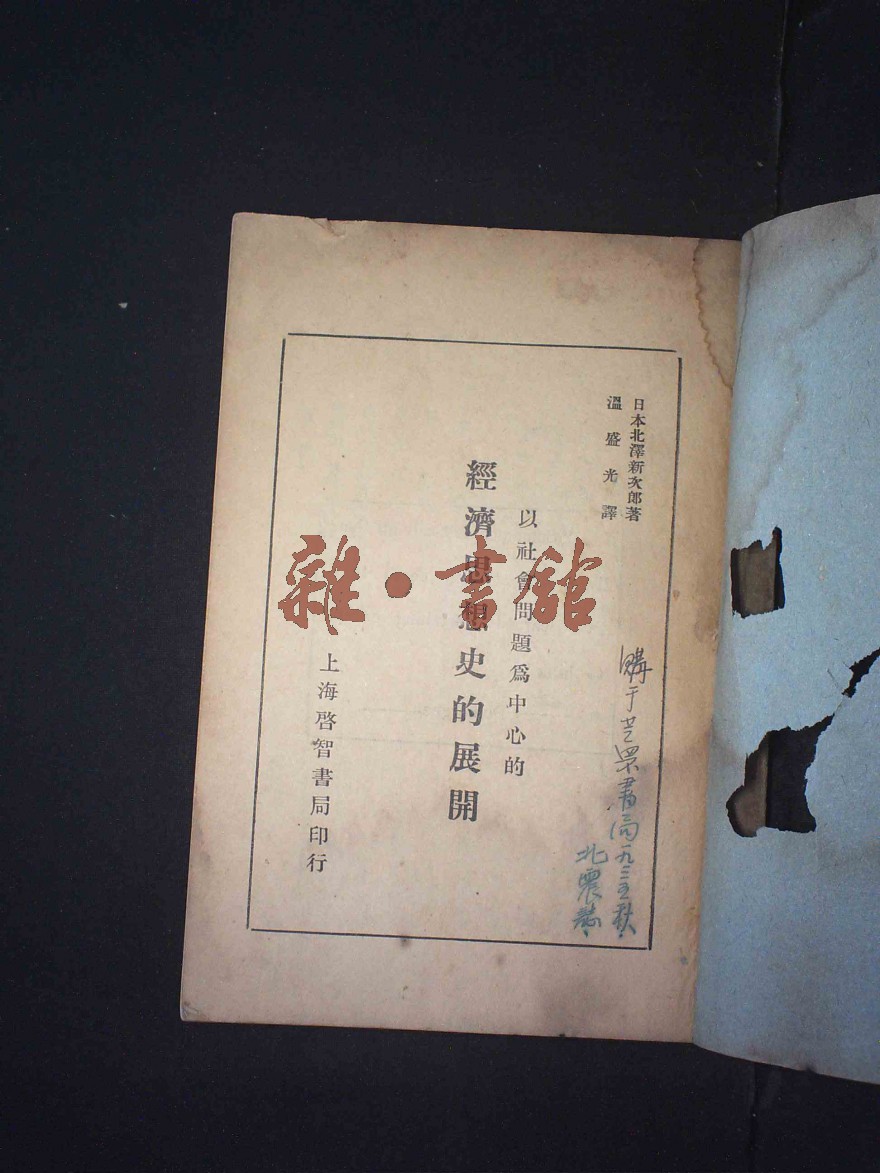 日本北澤新次郎著
溫盛光譯
以社會問題爲中心的
經濟思想史的展開
上海啓智書局印行
購于
書局一九三五秋
北震誌
雜·書館